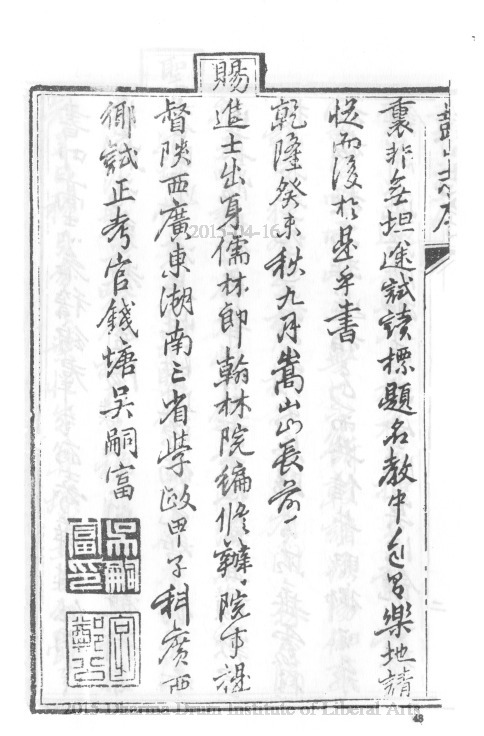 裏非無坦途試讀標題名教中自有樂地請
從而後於是乎書
乾隆癸未秋九月嵩山山長前
賜
進士出身儒林郎翰林院編修辦院事提
督陝西廣東湖南三省學政甲子科廣西
鄉試正考官錢塘吳嗣富
吳嗣富印
2015-04-16
2015 Dharma Drum Institute of Liberal Arts
48